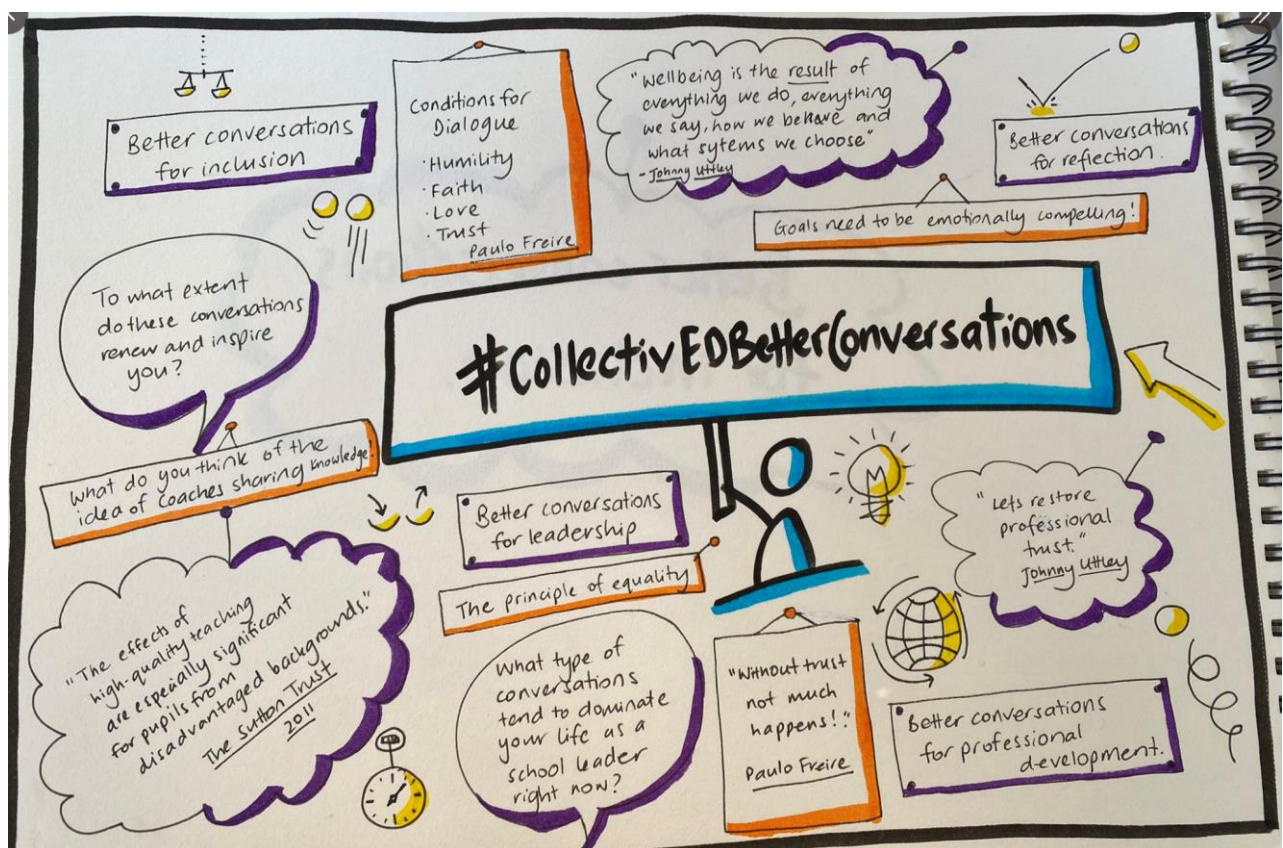 Better conversations
for inclusion
Conditions for
Dialogue
· Humility
· Faith
· Love
· Trust
Paulo Freire
"Wellbeing is the result of
everything we do, everything
we say, how we behave and
what sytems we choose"
- Johnny Uttley
Better conversations
for reflection.
Goals need to be emotionally compelling!
To what extent
do these conversations
renew and inspire
you?
#CollectivEDBetterConversations
What do you think of the
idea of coaches sharing knowledge?
Better conversations
for leadership
The principle of equality
"Lets restore
professional
trust."
Johnny Uttley
"The effects of
high-quality teaching
are especially significant
for pupils from
disadvantaged backgrounds."
The Sutton Trust
2011
What type of
conversations
tend to dominate
your life as a
school leader
right now?
"Without trust
not much
happens!"
Paulo Freire
Better conversations
for professional
development.